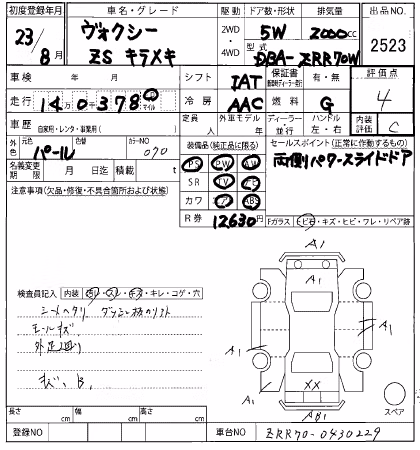 初度登録年月 車名・グレード 駆動 ドア数・形状 排気量 出品NO
23/8月 ヴォクシー ZS キラメキ 2WD・4WD 5W 2000cc 2523
型式 DBA-ZRR70W
車検 年 月 シフト IAT 保証書 有・無 評価点
走行 140,378 冷房 AAC 燃料 G 4
車歴 自家用・レンタ・事業用( ) 定員 人 外車モデル 年 ディーラー・並行 ハンドル 左・右 内装評価 C
外色 元色 パール 色替 カラーNO 070 装備品(純正品に限る) セールスポイント(正常に作動するもの)
PS PW AW 両側パワースライドドア
名義変更期限 月 日迄 積載 t SR TV ナビ
注意事項(欠品・修復・不具合箇所および状態) カワ ABS
R券 12630円 Fガラス トビ石・キズ・ヒビ・ワレ・リペア跡
A1
A1
検査員記入 内装 キレ・コゲ・穴
シートヘタリ
モールキズ
A1
A1
キズ、B,
A1
XX
AB1
スペア
長さ cm 幅 cm 高さ cm
登録NO 車台NO ZRR70-0430229